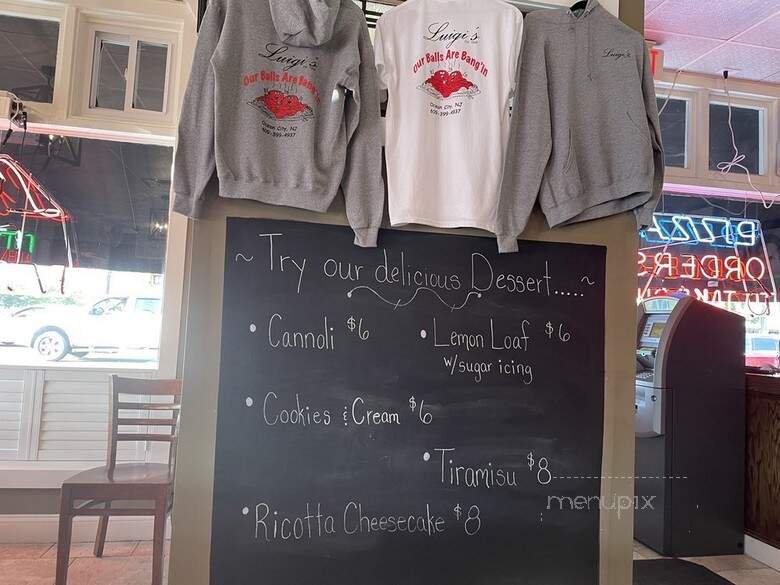 Luigi's
Our Balls Are Bang'in
Ocean City, NJ
609-399-4937
Luigi's
Our Balls Are Bang'in
Ocean City, NJ
609-399-4937
Luigi's
PIZZA
ORDERS
~ Try our delicious Dessert..... ~
• Cannoli $6
• Lemon Loaf $6
w/sugar icing
• Cookies & Cream $6
• Tiramisu $8
• Ricotta Cheesecake $8
menupix